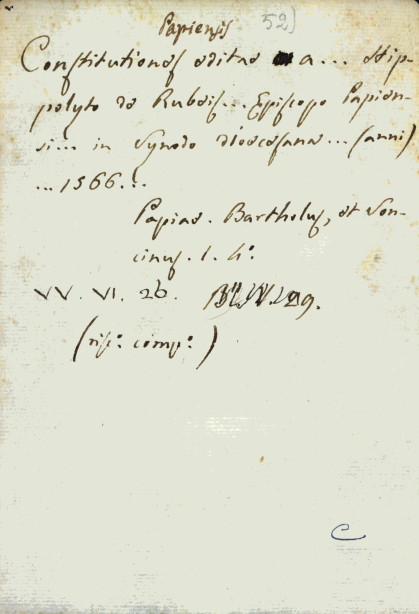 Papiensis 52)
Constitutiones editae a... Hip-
polyto de Rubeis... Episcopo Papien-
si... in Synodo dioecesana... (anni)
... 1566...
Papiae. Bartholus, et Con-
cinus. 1. 4°.
VV. VI. 26.
(misc. comp.)
C